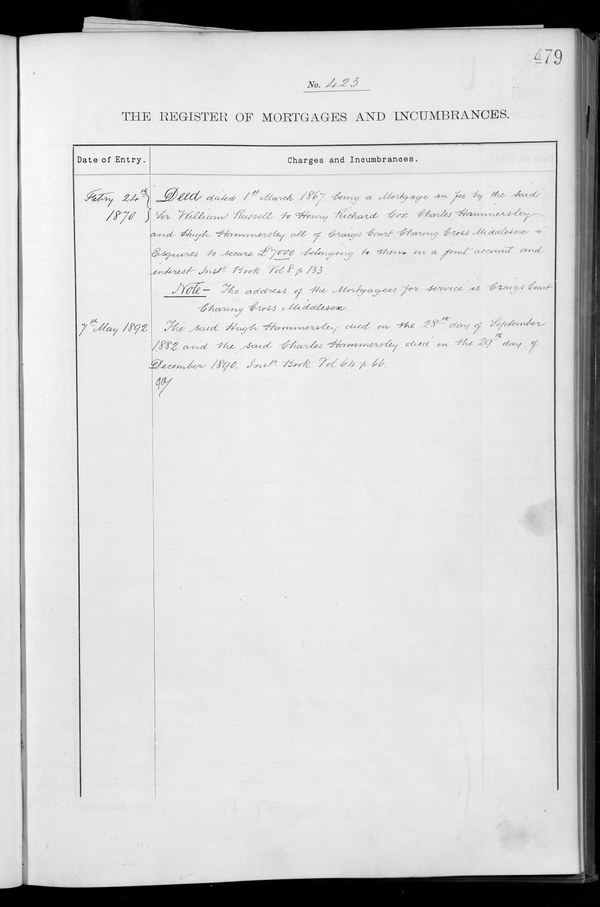 479
No. 423
THE REGISTER OF MORTGAGES AND INCUMBRANCES.
Date of Entry. Charges and Incumbrances.
Febry 24th 1870 Deed dated 1st March 1867 being a Mortgage in fee by the said
Sir William Russell to Henry Richard Cox Charles Hammersley
and Hugh Hammersley all of Craigs Court Charing Cross Middlesex
Esquires to secure £7000 belonging to them on a joint account and
interest Inst. Book Vol 8 p 133
Note – The address of the Mortgagees for service is Craigs Court
Charing Cross Middlesex.
7th May 1892 The said Hugh Hammersley died on the 28th day of September
1882 and the said Charles Hammersley died on the 29th day of
December 1890. Inst. Book Vol 64 p 66.